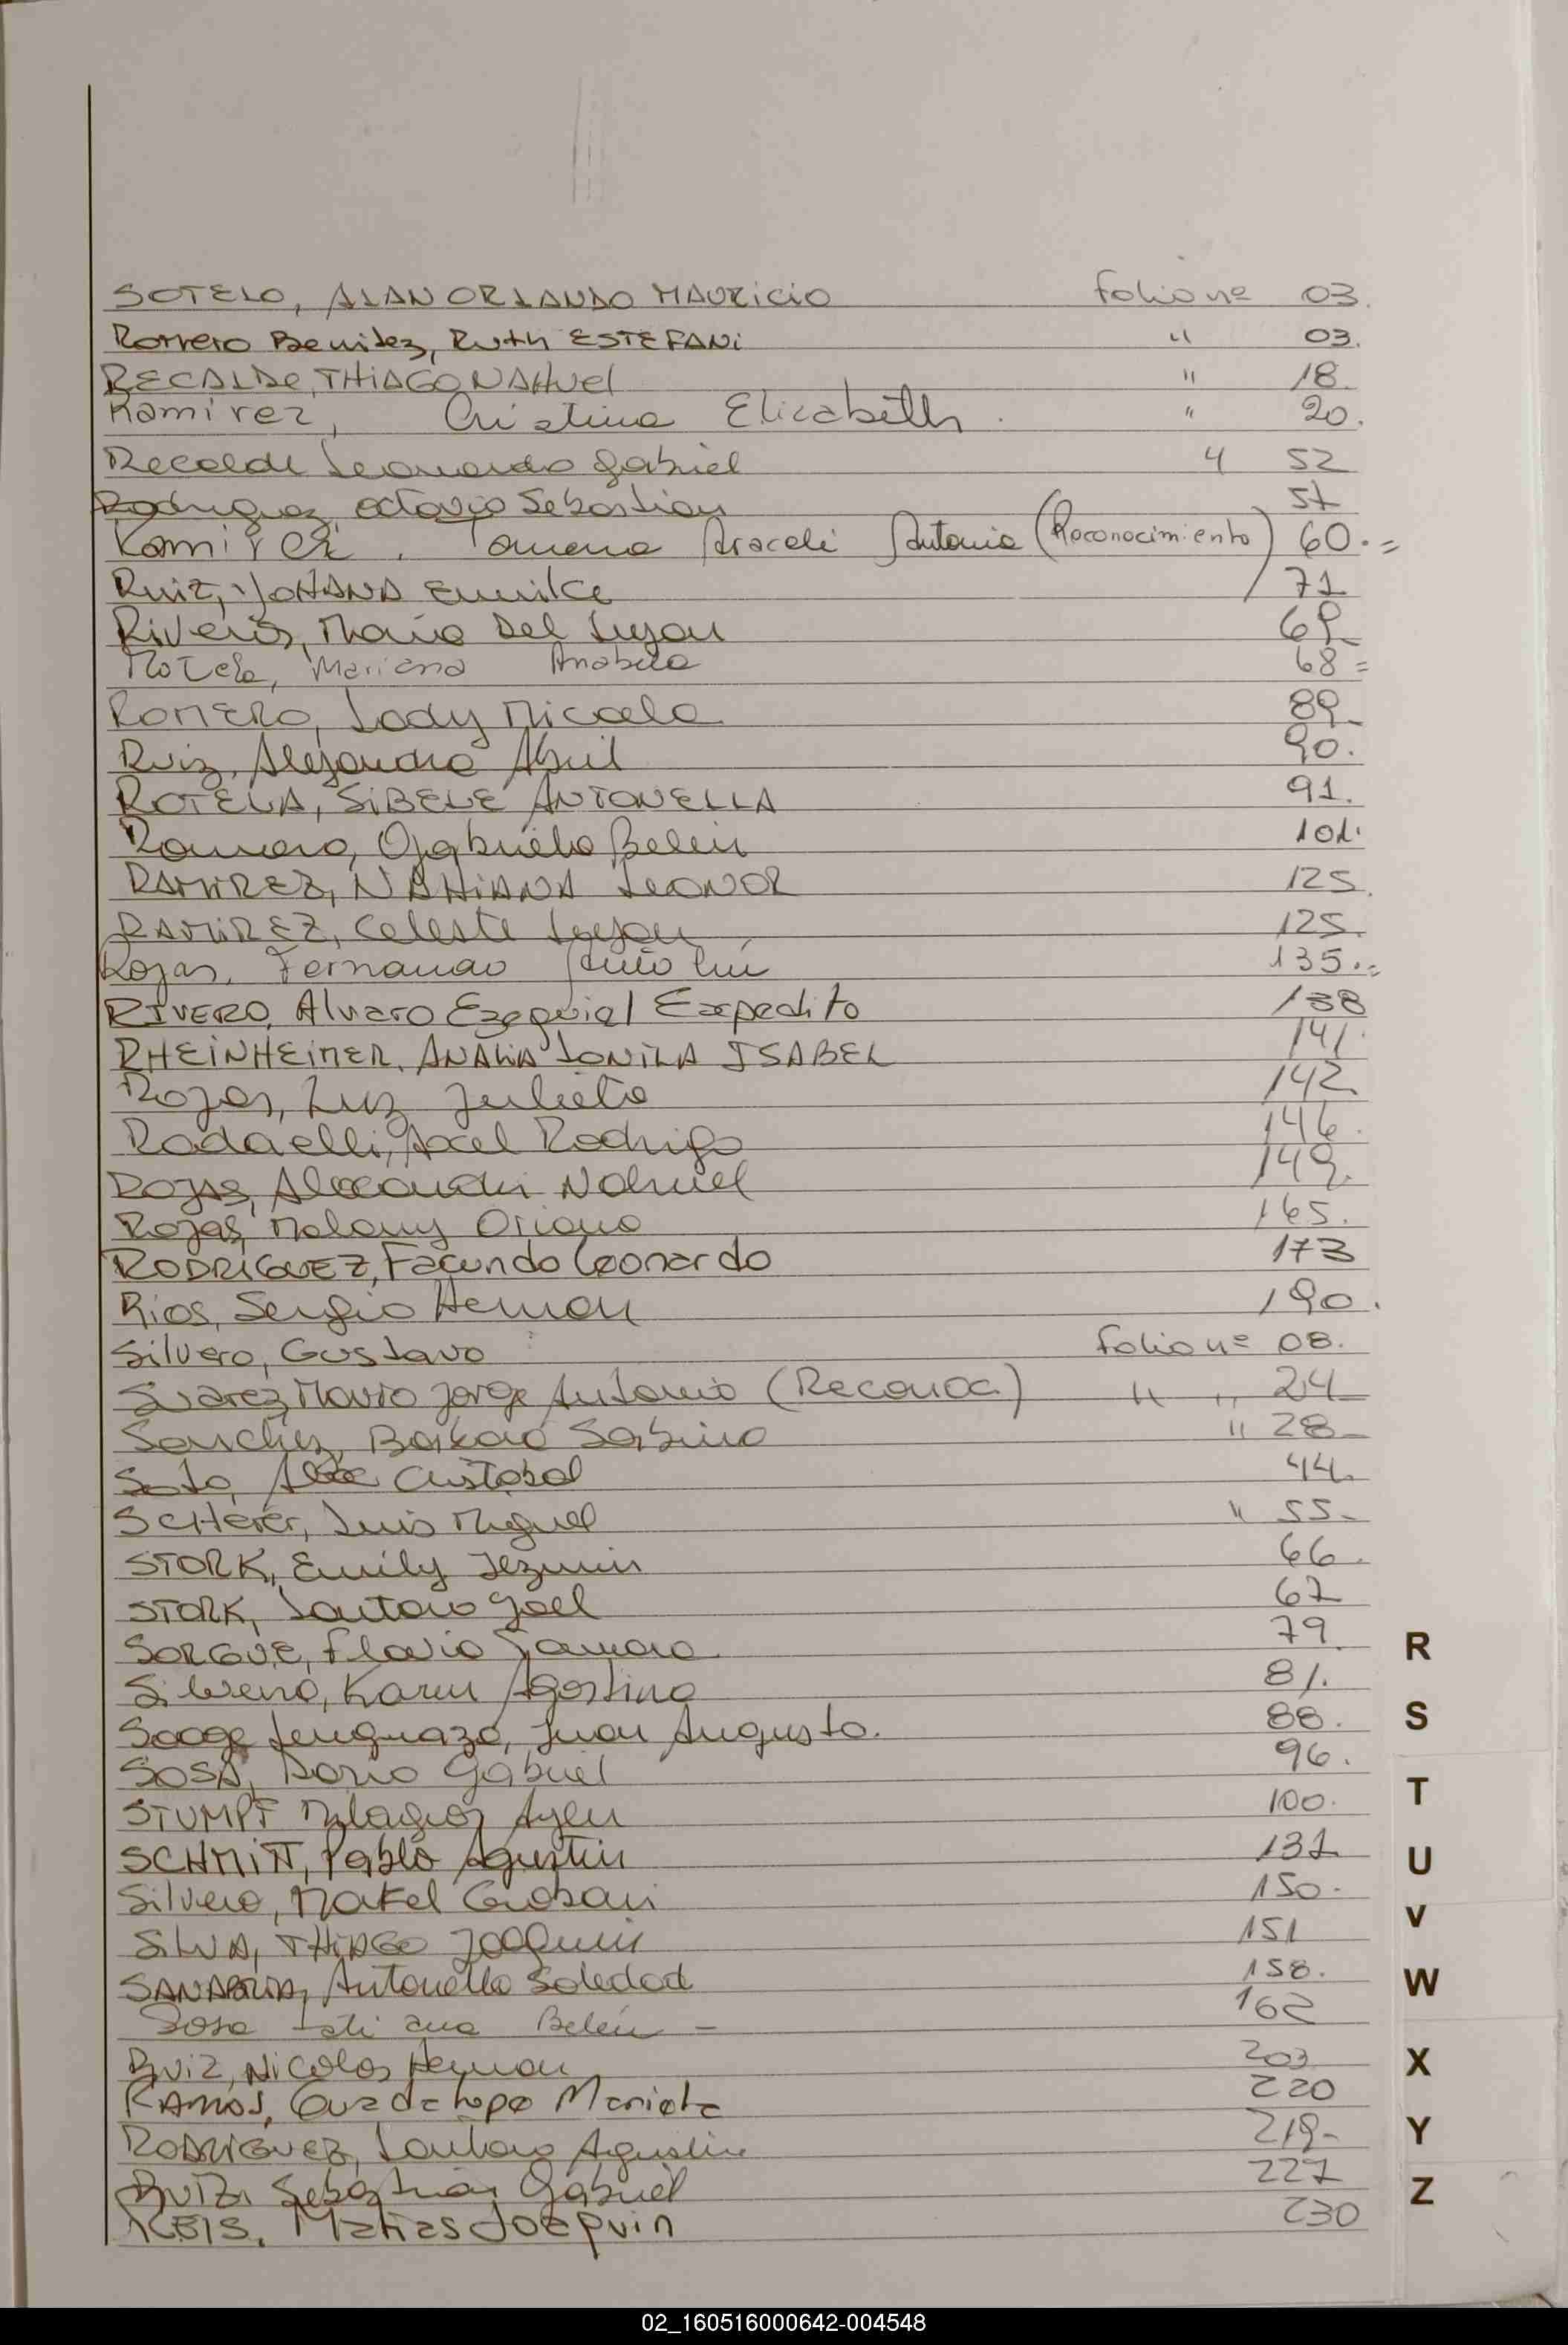 SOTELO, ALAN ORLANDO MAURICIO folio nº 03.
Romero Benitez, Ruth ESTEFANI " 03.
RECALDE, THIAGO NAHUEL " 18.
Ramirez, Cristina Elizabeth " 20.
Recalde Leonardo Gabriel " 52
Rodriguez, Octavio Sebastian 57
Ramirez, Araceli Antonia (Reconocimiento) 60.=
Ruiz, YOHANA Emilce 71
Riveros, Maria Del Lujan 69
Rotela, Mariana Anabela 68=
ROMERO, Lady Micaela 89
Ruiz, Alejandra Abril 90.
ROTELA, SIBELE ANTONELLA 91.
Romero, Gabriela Belen 101.
RAMIREZ, NAHIANA LEONOR 125.
RAMIREZ, Celeste Lujan 125.
Rojas, Fernando 135.=
RIVERO, Alvaro Ezequiel Expedito 138
RHEINHEIMER, ANALIA LONILA ISABEL 141.
Rojas, Luz Julieta 142
Radaelli, Axel Rodrigo 146.
ROJAS, Alexander Nahuel 149.
Rojas, Malany Oriana 165.
RODRIGUEZ, Facundo Leonardo 173
Rios, Sergio Hernan 190.
Silvero, Gustavo folio nº 08.
Suarez, Mario Jorge Antonio (Reconoc.) " " 24
Sanchez, Barbara Sabina " 28
Soto, Cristobal 44.
SCHerer, Luis Miguel " 55.
STORK, Emily Jazmin 66.
STORK, Lautaro Joel 67
SORGUE, Flavia Tamara 79.
Silvero, Karen Agostina 81.
Juan Augusto. 88.
SOSA, Dario Gabriel 96.
STUMPF Milagros Aylen 100.
SCHMITT, Pablo Agustin 131
Silvero, Maikel 150.
SILVA, THIAGO Joaquin 151
SANABRIA, Antonella Soledad 158.
Sosa Tatiana Belén - 162
Ruiz, Nicolas Hernan 203
RAMOS, Guadalupe Mariela 220
RODRIGUEZ, Lautaro Agustin 219-
RUIZ, Sebastian Gabriel 227
REIS, Matias Joaquin 230
R
S
T
U
V
W
X
Y
Z
02_160516000642-004548